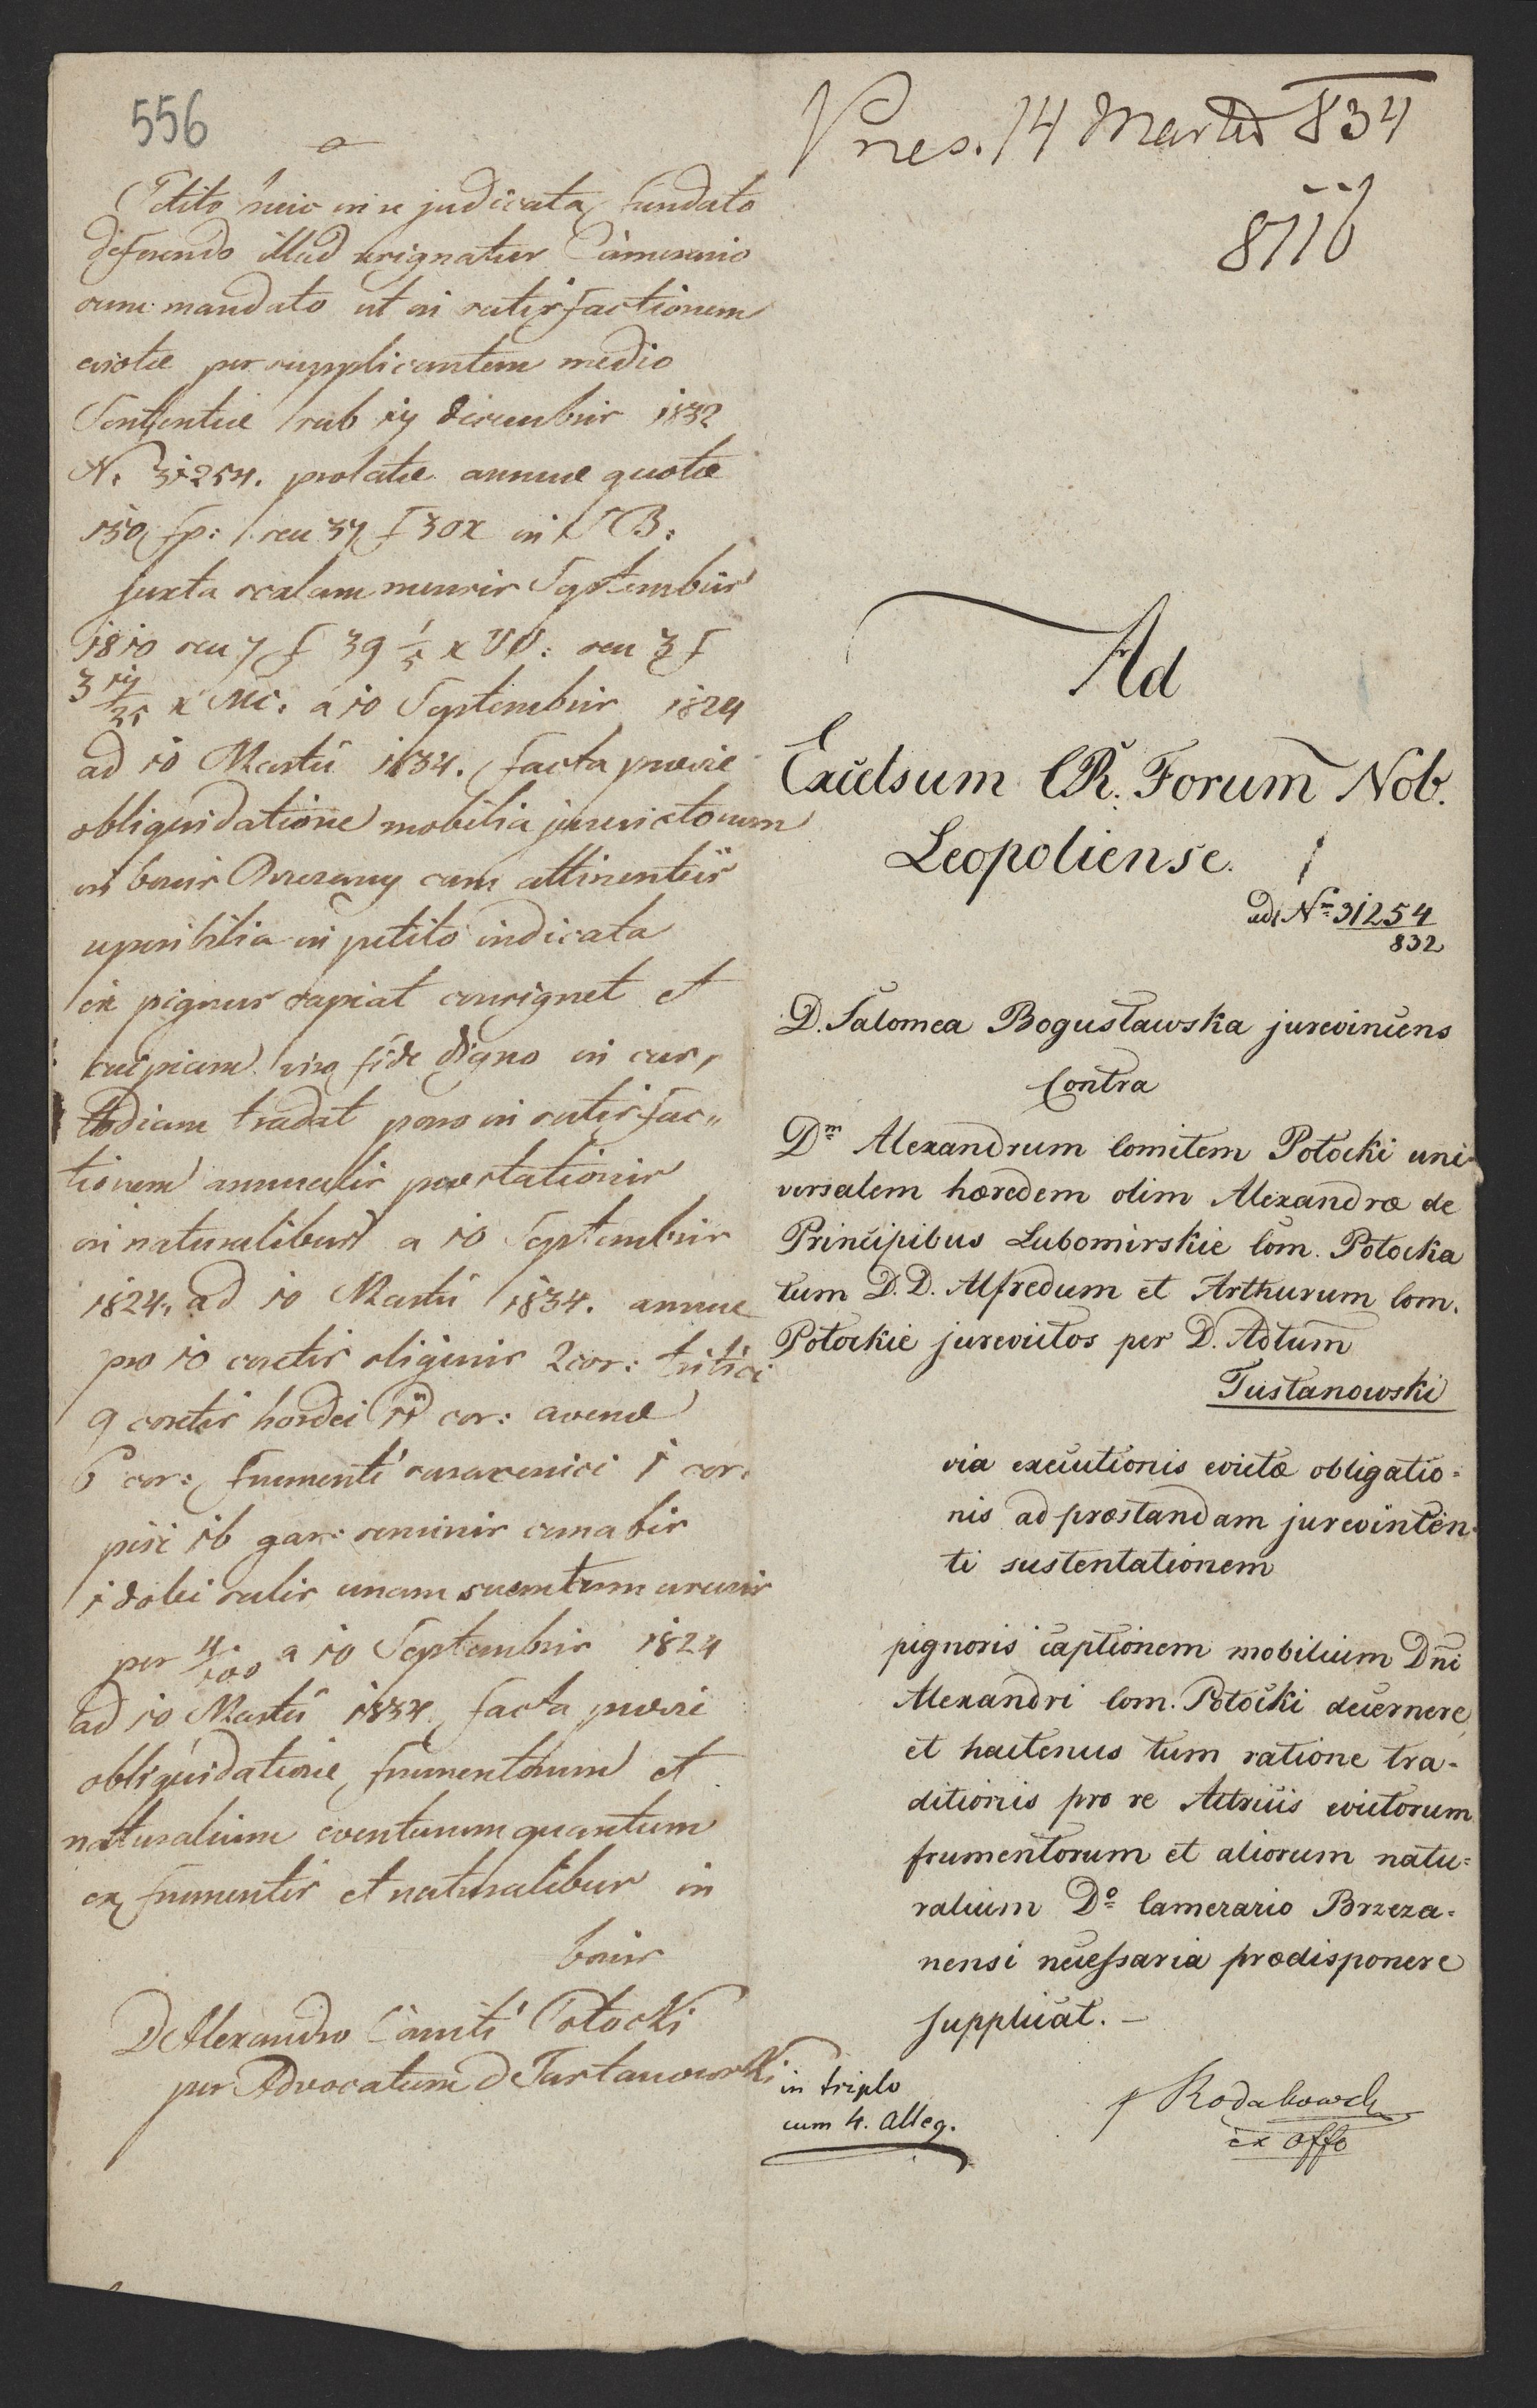 556
Petito huic in re judicata fundato
deferendo illud assignatur Camerario
cum mandato ut in satisfactionem
evictæ per supplicantem medio
Sententiæ sub 19 Decembris 1832
N. 31254. prolatæ annuæ quotæ
150 fp: seu 37 f 30 x in B:
juxta scalam mensis Septembris
1810 seu 7 f 39 1/5 x VV: seu 3 f
3 x MC. a 10 Septembris 1824
ad 10 Martii 1834. facta prævie
obliquidatione mobilia jurevictorum
in bonis Brzezany cum attinentiis
reperibilia in petito indicata
in pignus capiat consignet et
cuipiam viro fide digno in cus,
todiam tradat porro in satisfac„
tionem annualis præstationis
in naturalibus a 10 Septembris
1824, ad 10 Martii 1834. annue
pro 10 coretis siliginis 2 cor: tritici
9 coretis hordei 11 cor: avenæ
6 cor: frumenti saracenici 1 cor.
pisi 16 gar: seminis canabis
1 dolei salis unam
per 4/100 a 10 Septembris 1824
ad 10 Martii 1834 facta prævie
obliquidatione frumentorum et
naturalium eventurum quantum
ex frumentis et naturalibus in
bonis
D Alexandro Comiti Potocki
per Advocatum D Tustanowski
Præs. 14 Martii 834
8116
Ad
Excelsum CR. Forum Nob.
Leopoliense.
ad Nrm 31254
832
D. Salomea Bogusławska jurevincens
Contra
Dm Alexandrum Comitem Potocki uni=
versalem hæredem olim Alexandræ de
Principibus Lubomirskie Com. Potocka
tum D.D. Alfredum et Arthurum Com.
Potockie jurevictos per D. Adtum
Tustanowski
via executionis evictæ obligatio=
nis ad præstandam jurevincen=
ti sustentationem
pignoris captionem mobilium Dni
Alexandri Com. Potocki decernere
et hactenus tum ratione tra=
ditionis pro re Actricis evictorum
frumentorum et aliorum natu=
ralium Do Camerario Brzeza=
nensi necessaria prædisponere
supplicat. —
in triplo
cum 4. Alleg.
Rodakowski
ex offo